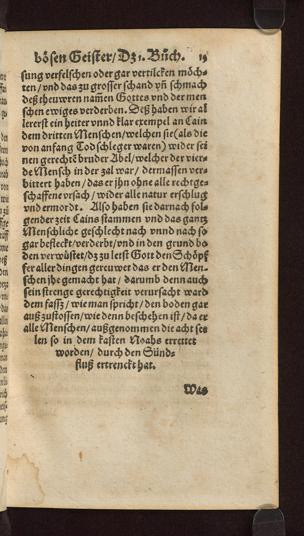 bösen Geister/ Dz 1. Büch. 19
sung verfelschen oder gar vertilcken möch-
ten/ vnd das zu grosser schand vñ schmach
deß thewren namen Gottes vnd der men
schen ewiges verderben. Deß haben wir al
lererst ein heiter vnnd klar exempel an Cain
dem dritten Menschen/ welchen sie (als die
von anfang Todschleger waren) wider sei
nen gerechtē bruder Abel/ welcher der vier-
de Mensch in der zal war/ dermassen ver-
bittert haben/ das er jhn ohne alle rechtge-
schaffene vrsach/ wider alle natur erschlug
vnd ermordt. Also haben sie darnach fol-
gender zeit Cains stammen vnd das gantz
Menschliche geschlecht nach vnnd nach so
gar befleckt/ verderbt/ vnd in den grund bo
den verwüstet/ dz zu letst Gott den Schöpf
fer aller dingen gerewet das er den Men-
schen jhe gemacht hat/ darumb denn auch
sein strenge gerechtigkeit verursacht ward
dem fassz/ wie man spricht/ den boden gar
auß zustossen/ wie denn beschehen ist/ da er
alle Menschen/ außgenommen die acht see
len so in dem kasten Noahs errettet
worden/ durch den Sünd-
fluß ertrenckt hat.
Was